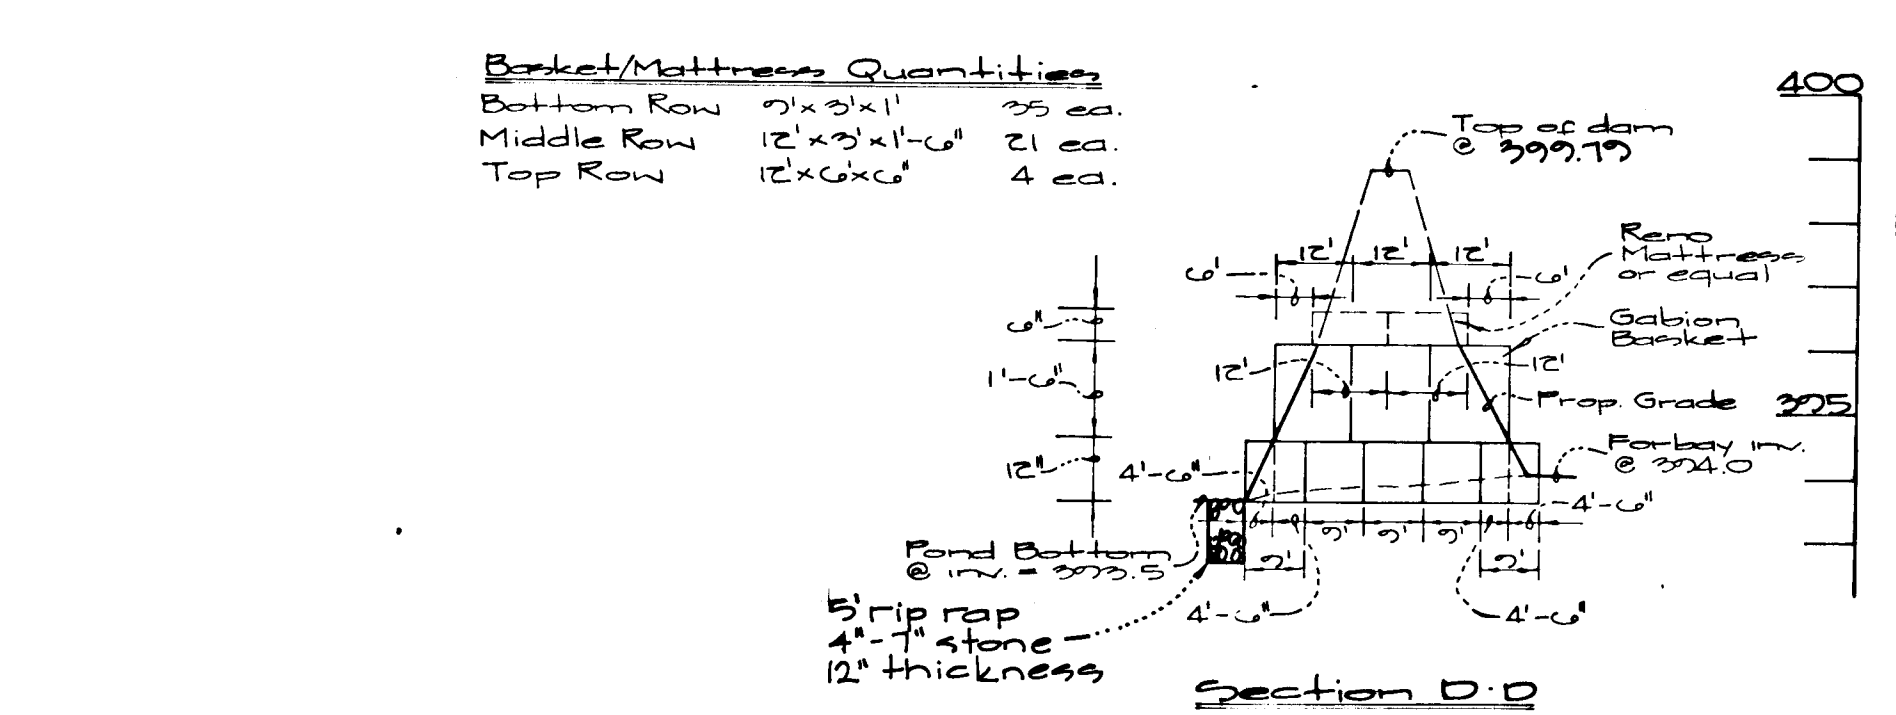 Basket/Mattress Quantities
Bottom Row 9'x3'x1' 35 ea.
Middle Row 12'x3'x1'-6" 21 ea.
Top Row 12'x6'x6" 4 ea.
400
Top of dam
@ 399.79
Reno
Mattress
or equal
12' 12' 12'
6' 6'
6"
Gabion
Basket
1'-6"
12' 12'
Prop. Grade
395
Forbay inv.
@ 394.0
12"
4'-6"
4'-6"
9' 9' 9'
Pond Bottom
@ inv. = 393.5
9' 9'
4'-6" 4'-6"
5' rip rap
4"-7" stone
12" thickness
Section D-D